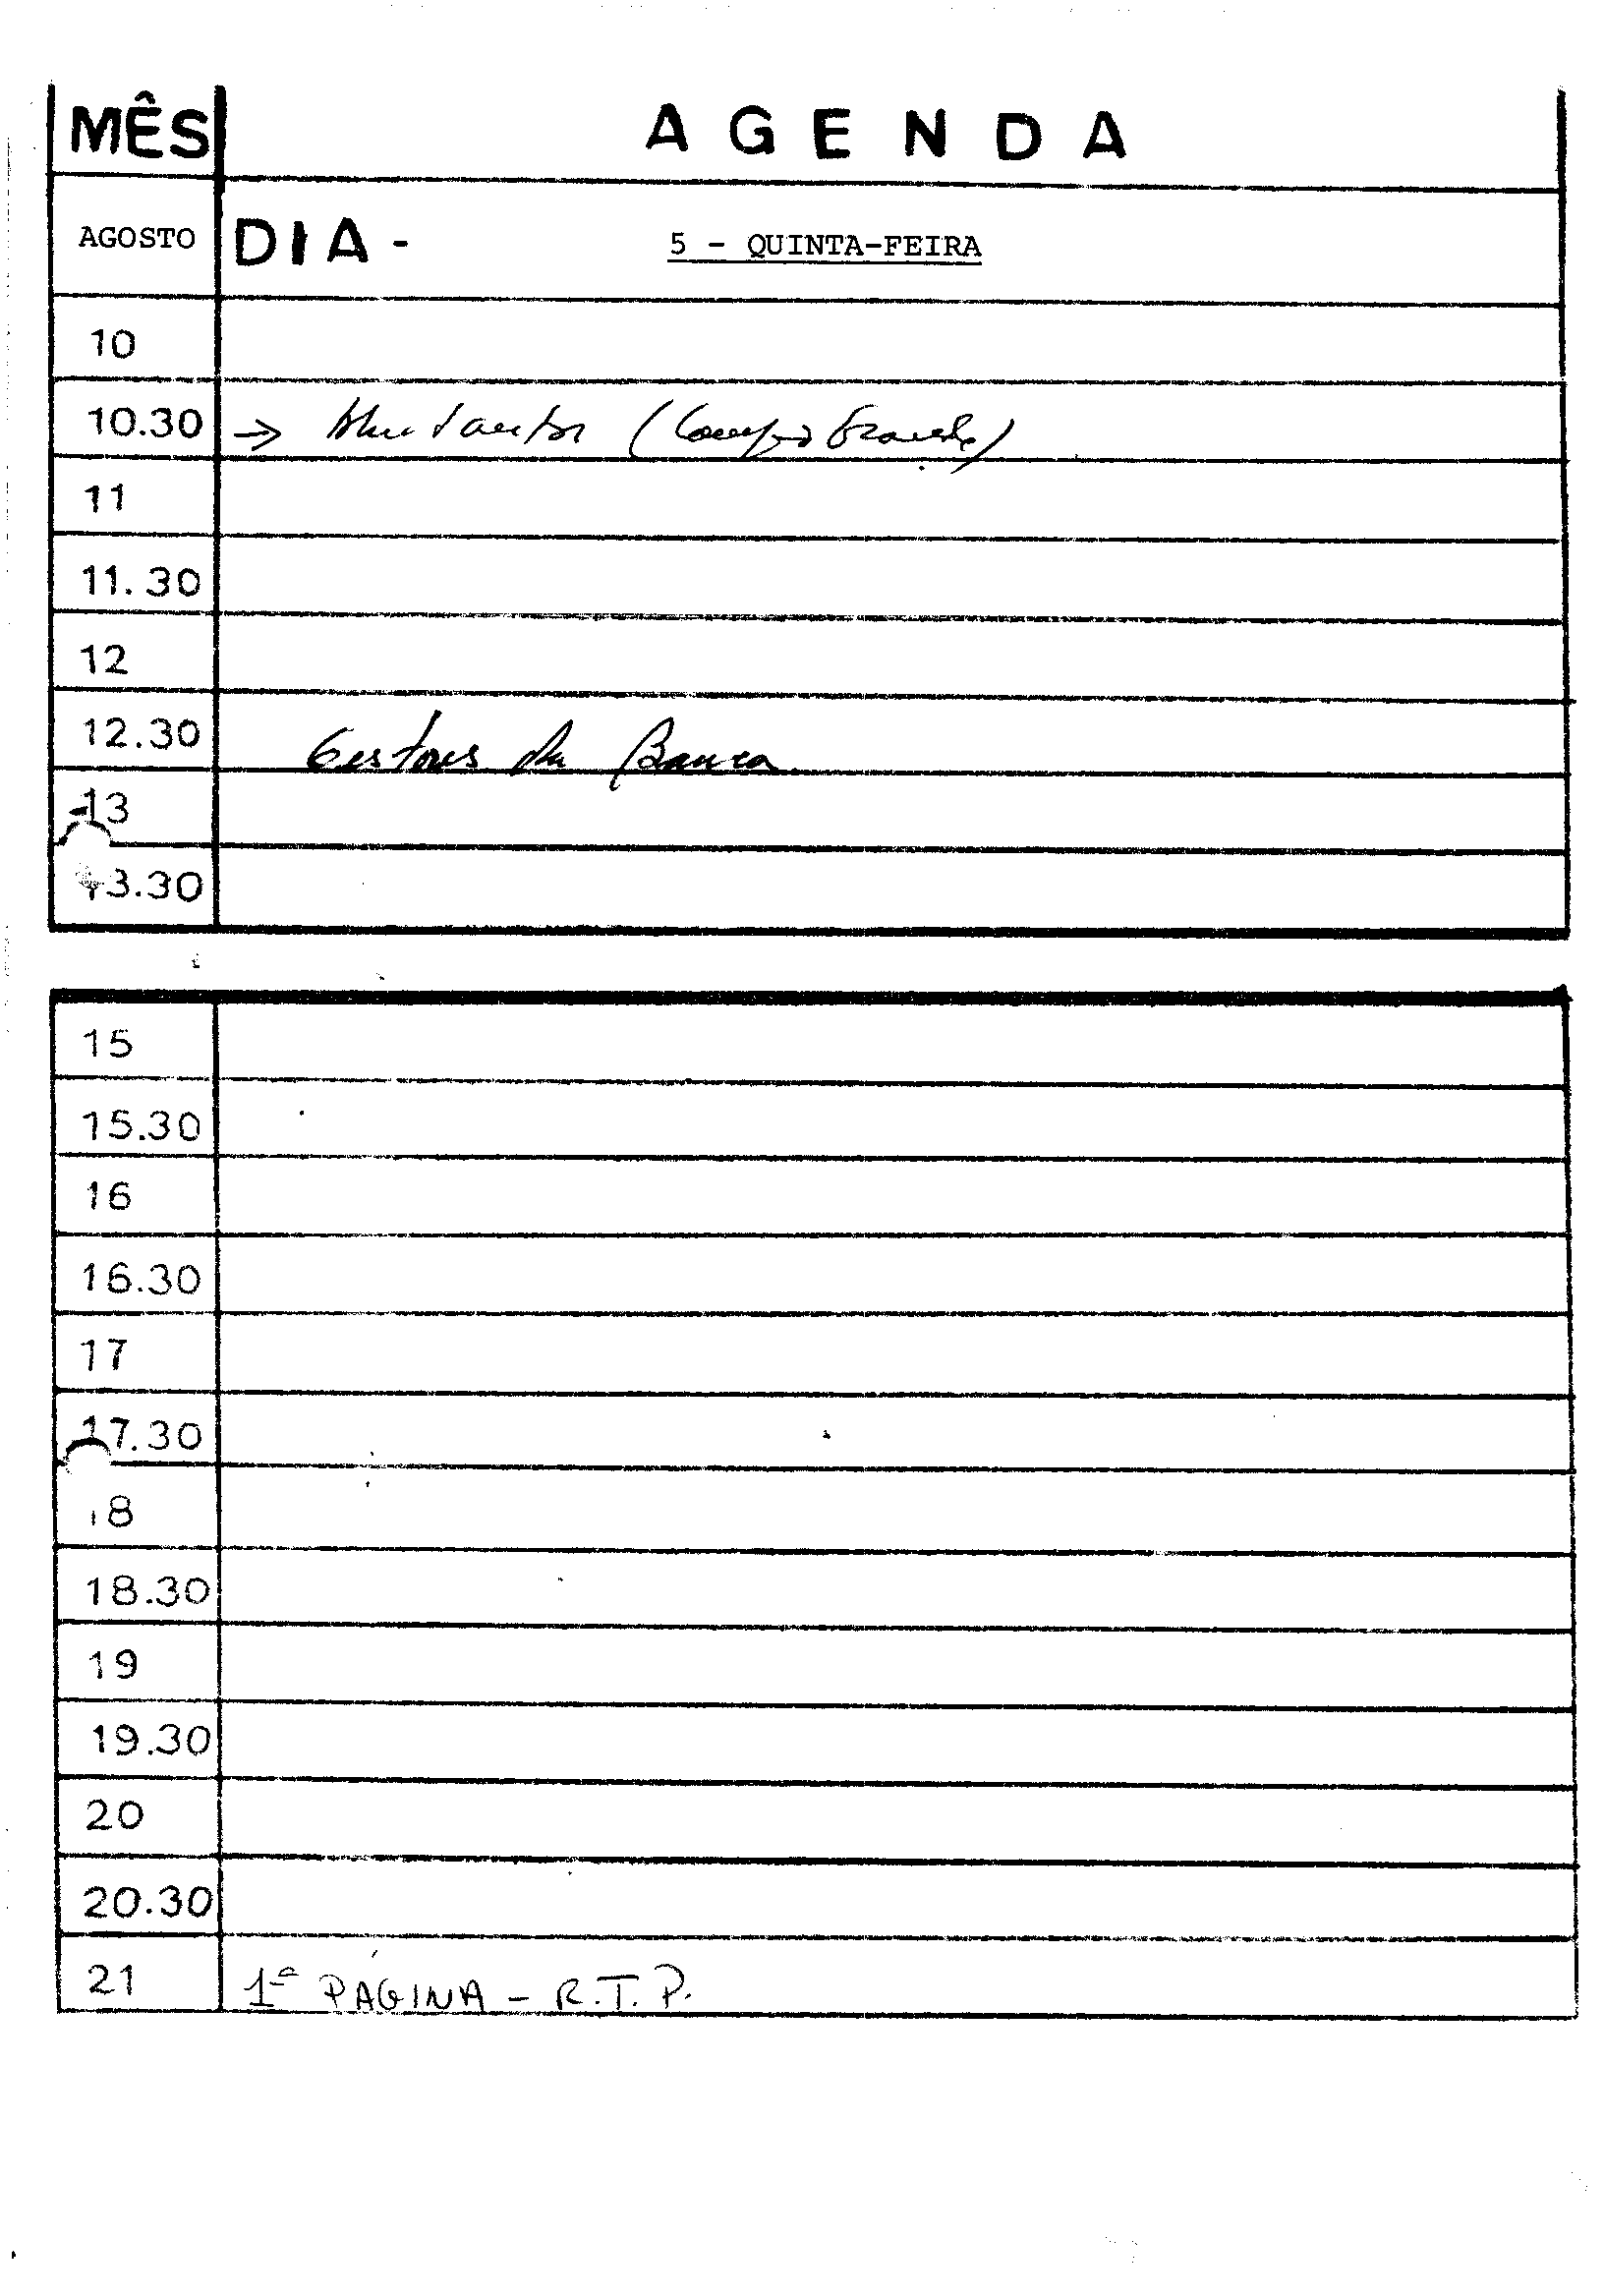 MÊS AGENDA
AGOSTO DIA - 5 - QUINTA-FEIRA
10
10.30 → (Campo Grande)
11
11.30
12
12.30 Gestores da Banca
13
13.30
15
15.30
16
16.30
17
17.30
18
18.30
19
19.30
20
20.30
21 1ª PÁGINA - R.T.P.